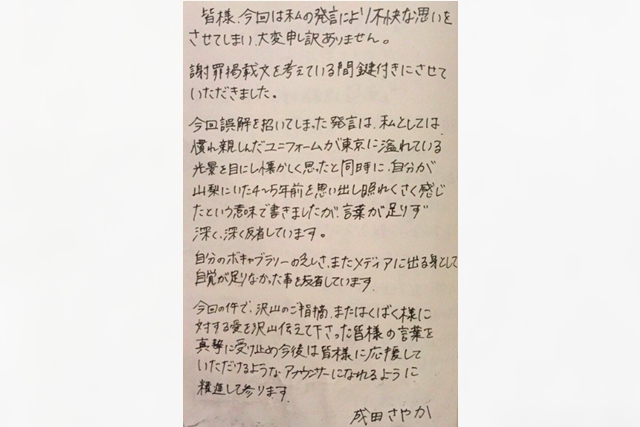 皆様、今回は私の発言により不快な思いを
させてしまい、大変申し訳ありません。
謝罪掲載文を考えている間鍵付きにさせて
いただきました。
今回誤解を招いてしまった発言は、私としては、
慣れ親しんだユニフォームが東京に溢れている
光景を目にし懐かしく思ったと同時に、自分が
山梨にいた4~5年前を思い出し照れくさく感じ
たという意味で書きましたが、言葉が足りず
深く、深く反省しています。
自分のボキャブラリーの乏しさ、またメディアに出る身として
自覚が足りなかった事を反省しています。
今回の件で、沢山のご指摘、またはくばく様に
対する愛を沢山伝えて下さった皆様の言葉を
真摯に受け止め今後は皆様に応援して
いただけるようなアナウンサーになれるように
精進して参ります。
成田さやか